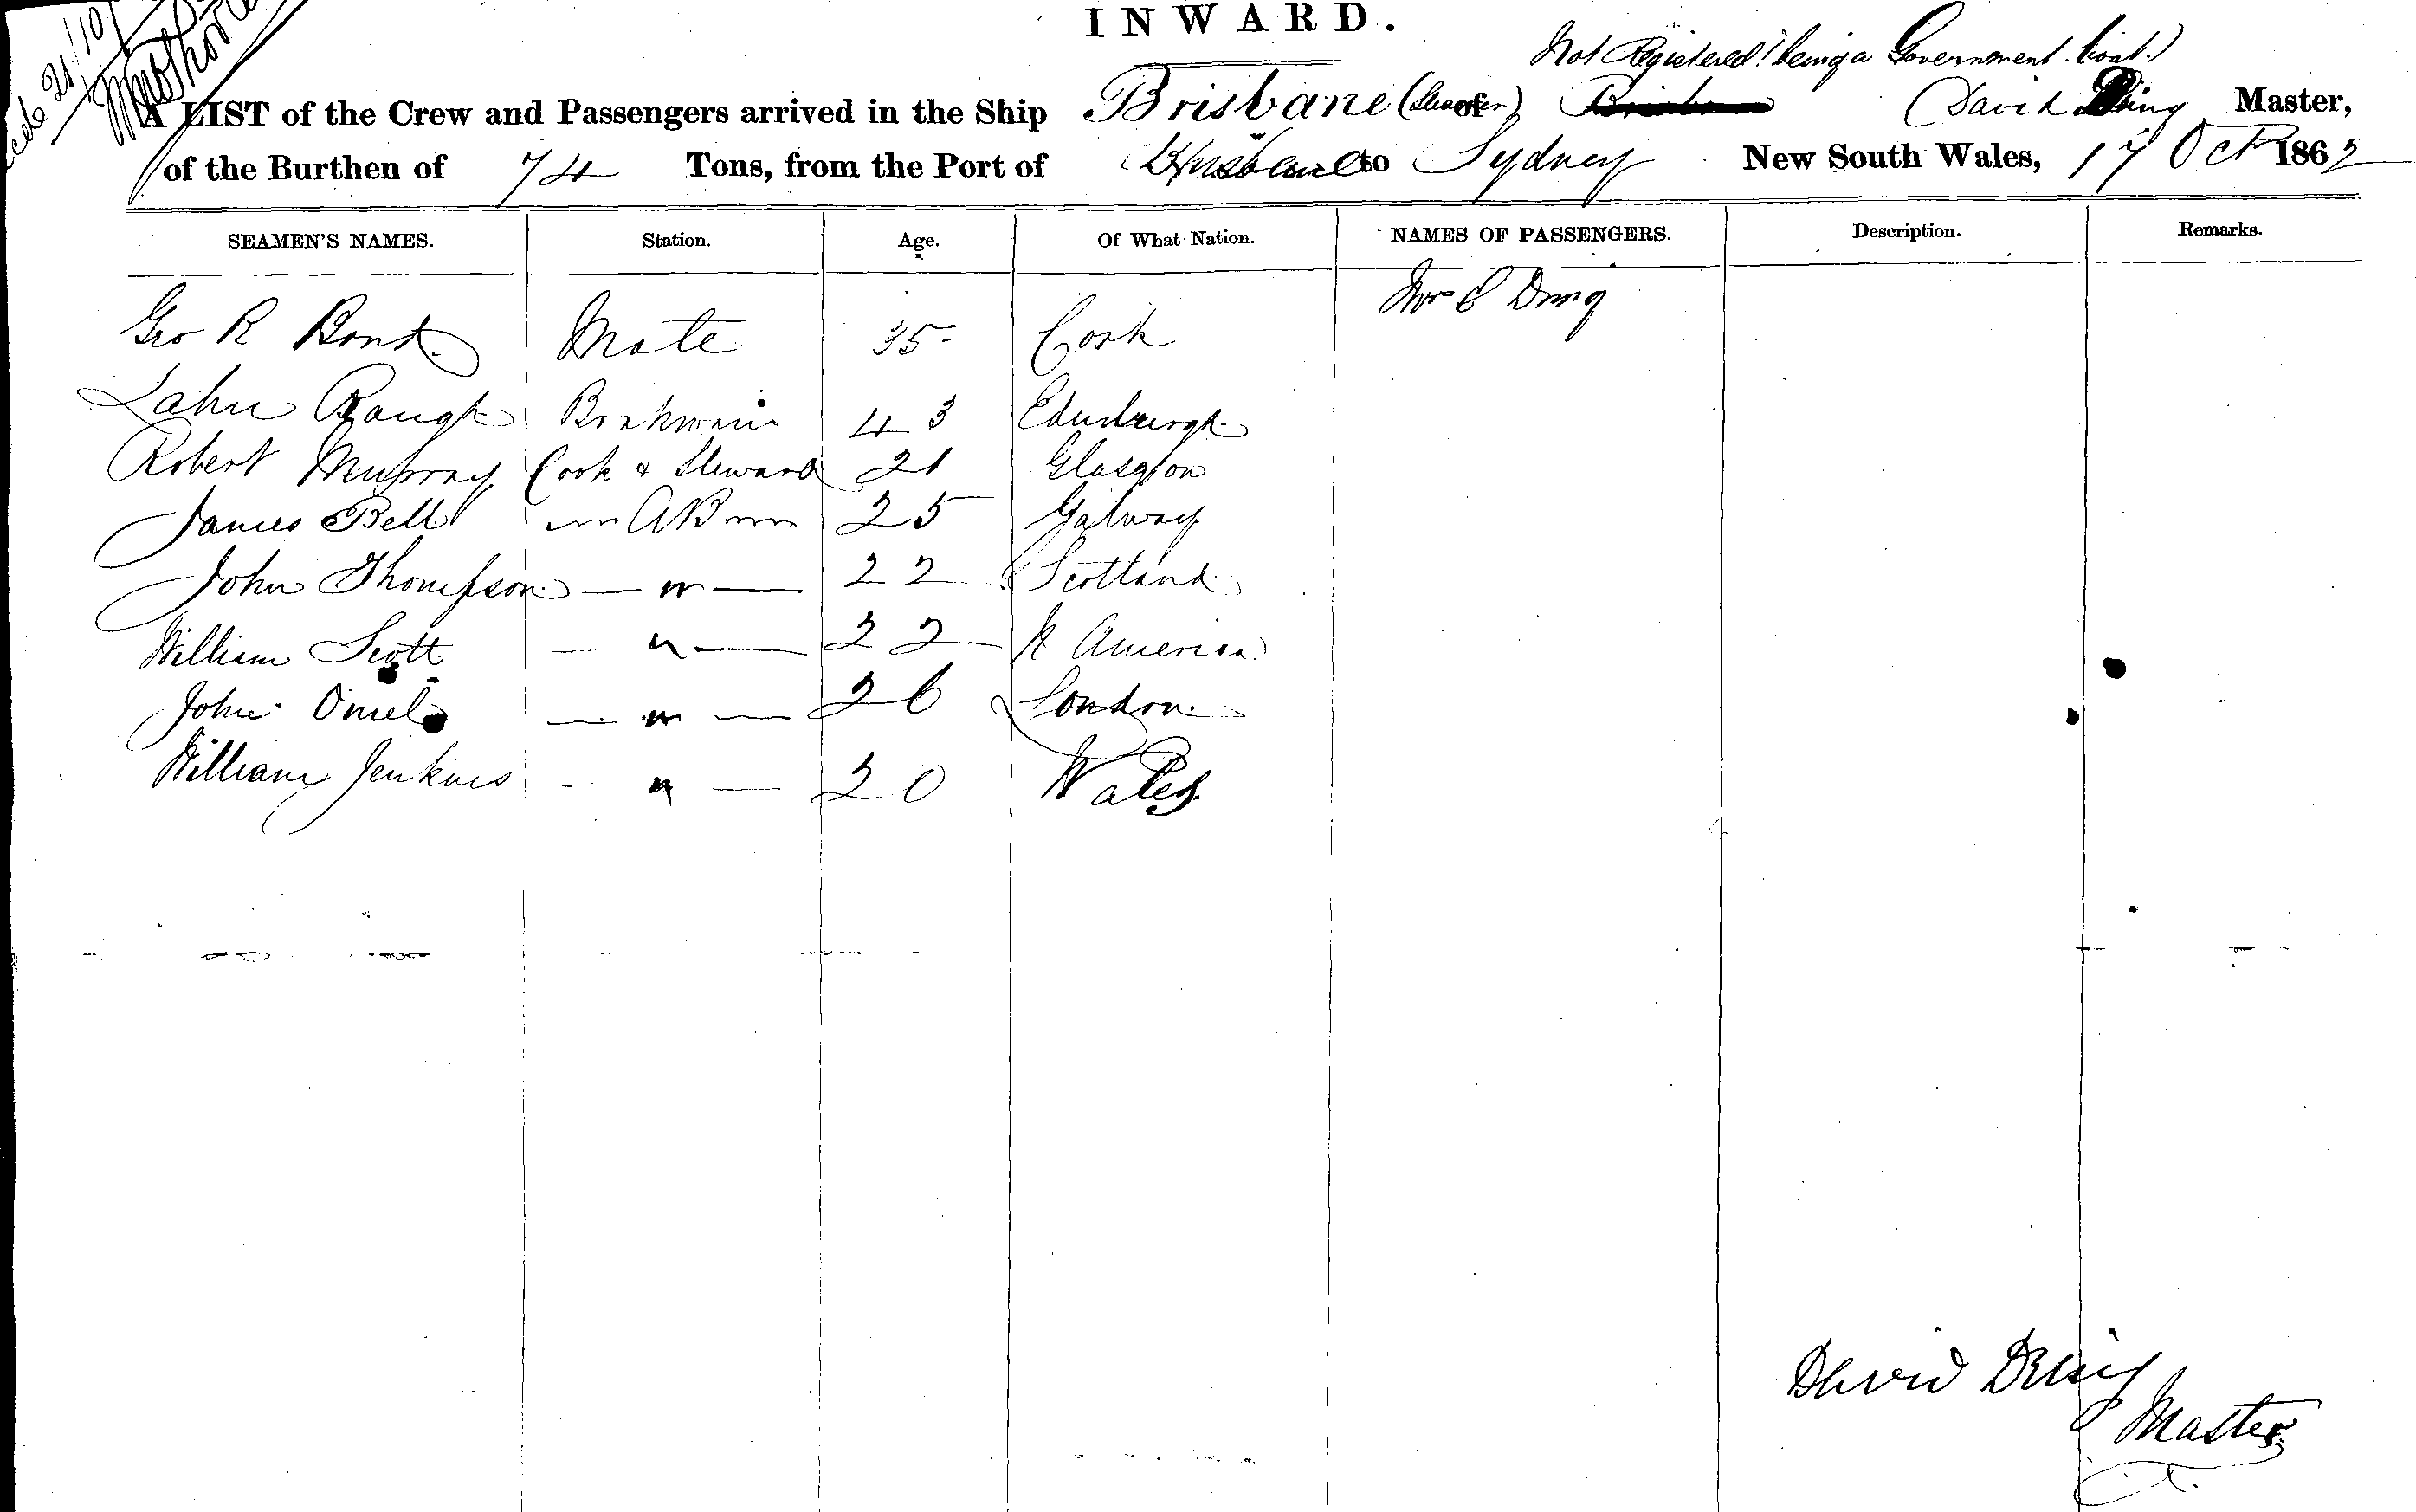 INWARD.
Not Registered being a Government boat.)
A LIST of the Crew and Passengers arrived in the Ship Brisbane of David Master,
of the Burthen of 74 Tons, from the Port of Brisbane to Sydney New South Wales, 17 Oct 1862
SEAMEN'S NAMES. Station. Age. Of What Nation. NAMES OF PASSENGERS. Description. Remarks.
Geo R Bond Mate 35 Cork
43 Edinburgh
Robert Murray Cook & Steward 21 Glasgow
James Bell AB 25 Galway
John Thompson 〃 22 Scotland
William Scott 〃 22 N America
John 〃 26 London
William Jenkins 〃 20 Wales
David
Master